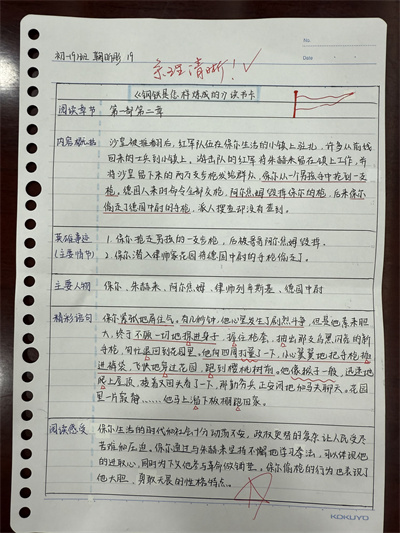 No.
Date
初一19班 19
条理清晰！✓
《钢铁是怎样炼成的》读书卡
阅读章节 第一部第二章
内容概括 沙皇被推翻后，红军队伍在保尔生活的小镇上驻扎，许多从前线
回来的士兵到小镇上。游击队的红军将朱赫来留在镇上工作，并
将沙皇留下来的两万支步枪发给群众，保尔从一个男孩手中抢到一支
枪，德国人来时命令全部交枪，阿尔焦姆毁掉保尔的枪，后来保尔
偷走了德国中尉的手枪，派人搜查却没有查到。
英雄事迹 1. 保尔抢走男孩的一支步枪，后被哥哥阿尔焦姆毁掉。
(主要情节) 2. 保尔潜入律师家花园将德国中尉的手枪偷走了。
主要人物 保尔、朱赫来、阿尔焦姆、律师列辛斯基、德国中尉
精彩语句 保尔紧张地屏住气。有几秒钟，他心里发生了剧烈斗争，但是他素来胆
大，终于不顾一切地探进身子，抓住枪套，抽出那支乌黑闪亮的新
手枪，匆忙退回到花园里。他向四周扫量了一下，小心翼翼地把手枪塞
进裤袋，飞快地穿过花园，跑到樱桃树前。他像猴子一般，迅速地
爬上屋顶，接着又回头看了一下，那勤务兵正安闲地和马夫聊天。花园
里一片寂静……他马上溜下板棚跑回家。
阅读感受 保尔生活的时代和社会十分动荡不安，政权更替的复杂让人民受尽
苦难和压迫。保尔通过与朱赫来坚持不懈地学习拳法，可以体现他
的进取心，同时为下文他参与革命做铺垫。保尔偷枪的行为也表现了
他大胆，勇敢无畏的性格特点。
KOKUYO